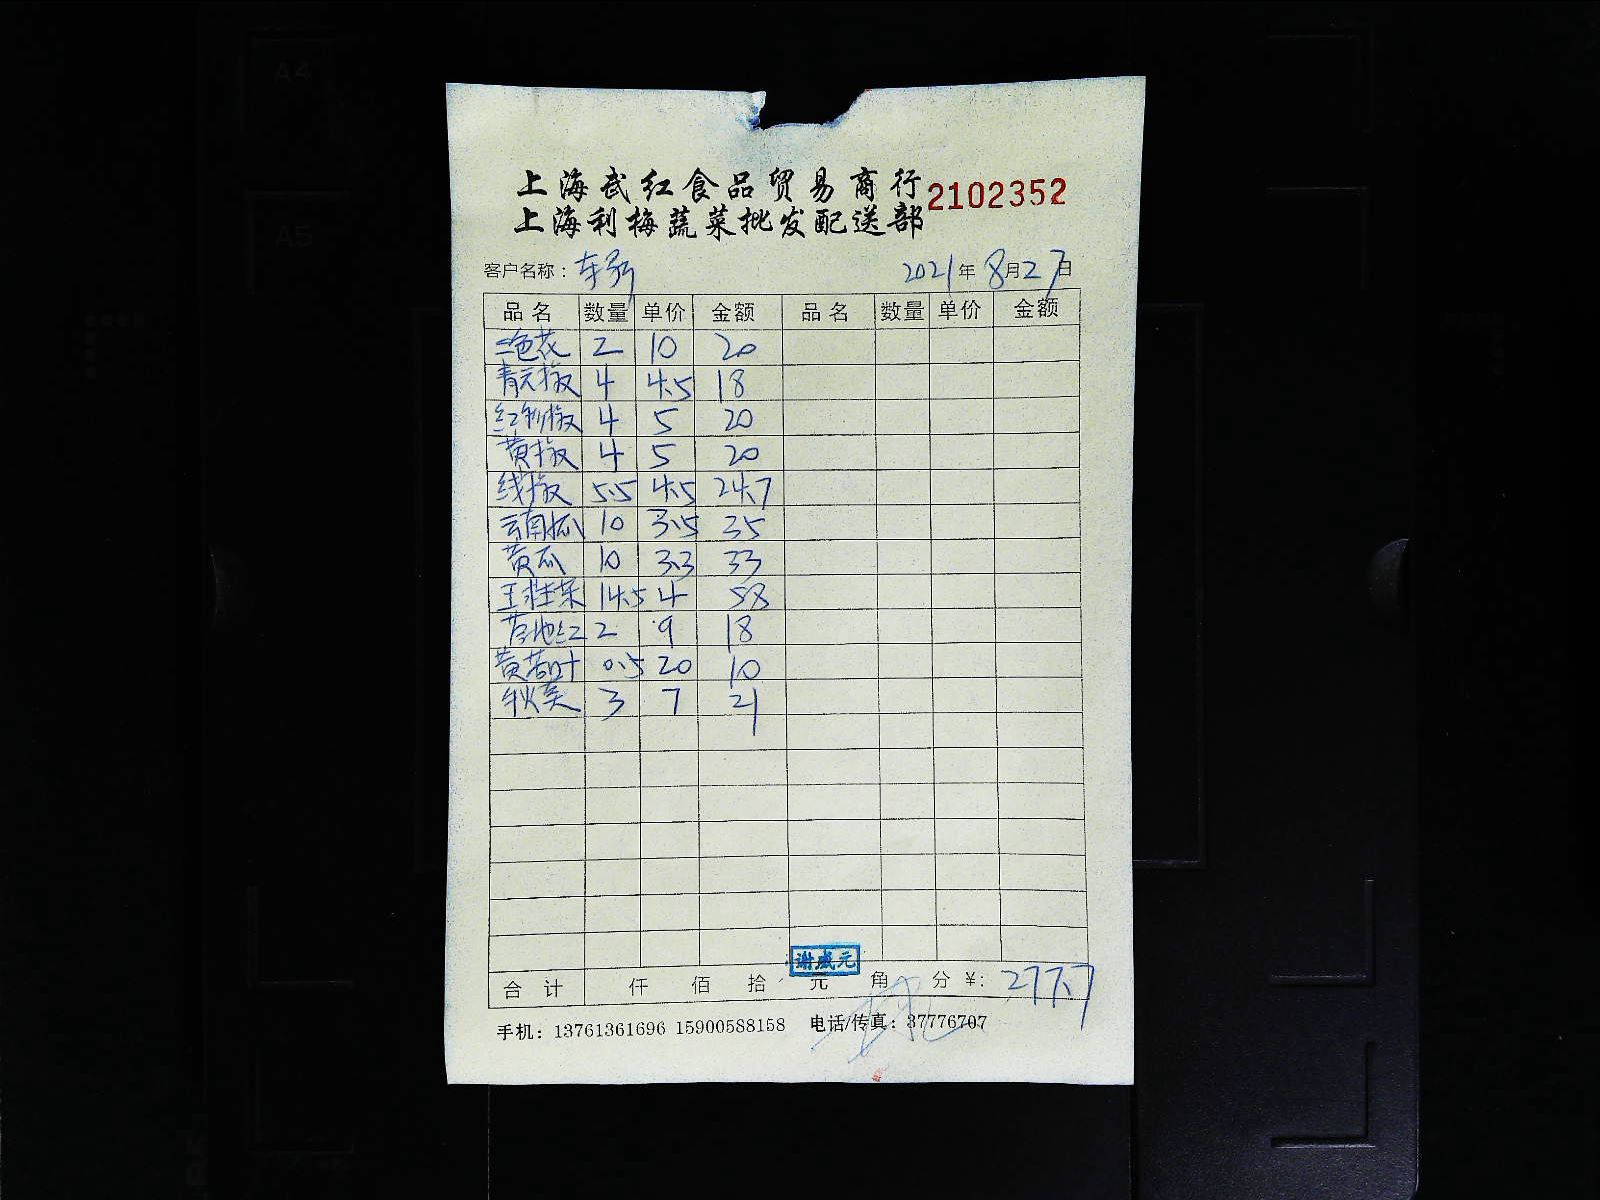 A4
A5
上海武红食品贸易商行
2102352
上海利梅蔬菜批发配送部
客户名称：
2021年8月27日
品名 数量 单价 金额 品名 数量 单价 金额
三色花 2 10 20
青元椒 4 4.5 18
红彩椒 4 5 20
黄椒 4 5 20
线椒 5.5 4.5 24.7
云南瓜 10 3.5 35
黄瓜 10 3.3 33
王甡菜 14.5 4 58
2 9 18
0.5 20 10
秋葵 3 7 21
谢威元
合计 仟 佰 拾 元 角 分 ¥: 277.7
手机：13761361696 15900588158 电话/传真：37776707